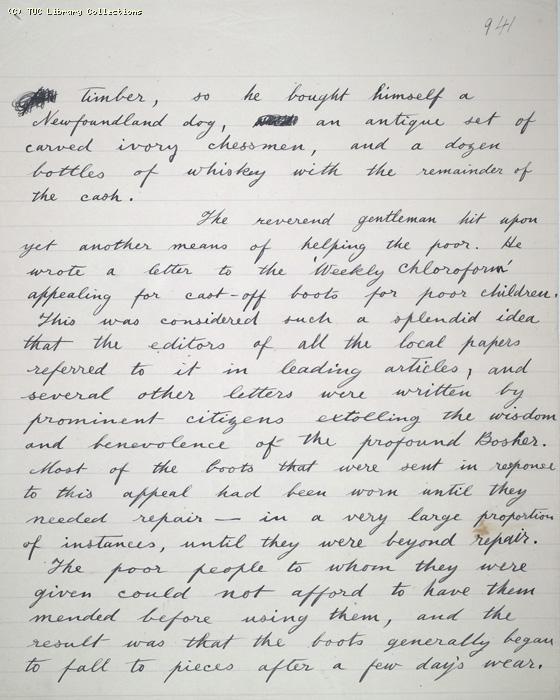 (C) TUC Library Collections
941
timber, so he bought himself a
Newfoundland dog, an antique set of
carved ivory chessmen, and a dozen
bottles of whiskey with the remainder of
the cash.
The reverend gentleman hit upon
yet another means of helping the poor. He
wrote a letter to the 'Weekly Chloroform'
appealing for cast-off boots for poor children.
This was considered such a splendid idea
that the editors of all the local papers
referred to it in leading articles, and
several other letters were written by
prominent citizens extolling the wisdom
and benevolence of the profound Bosher.
Most of the boots that were sent in response
to this appeal had been worn until they
needed repair — in a very large proportion
of instances, until they were beyond repair.
The poor people to whom they were
given could not afford to have them
mended before using them, and the
result was that the boots generally began
to fall to pieces after a few day's wear.